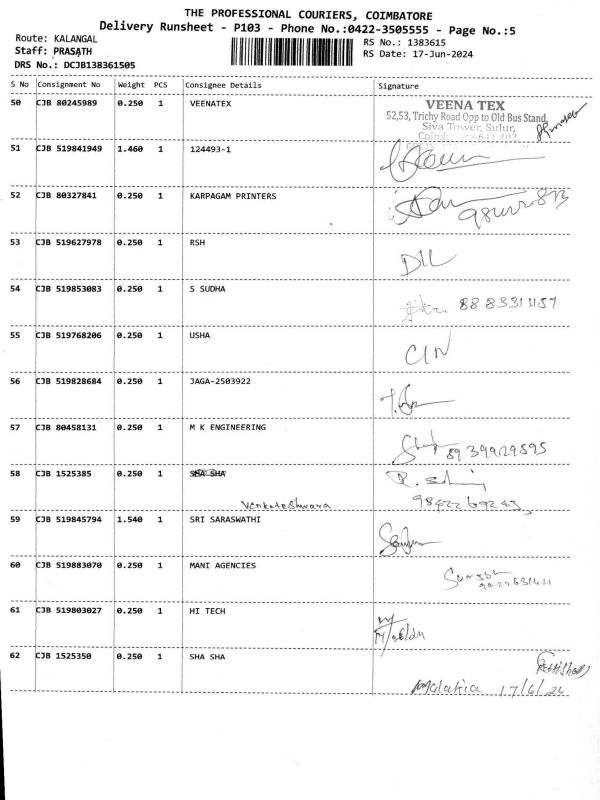 THE PROFESSIONAL COURIERS, COIMBATORE
Delivery Runsheet - P103 - Phone No.:0422-3505555 - Page No.:5
Route: KALANGAL
RS No.: 1383615
Staff: PRASATH
RS Date: 17-Jun-2024
DRS No.: DCJB138361505
S No Consignment No Weight PCS Consignee Details Signature
50 CJB 80245989 0.250 1 VEENATEX
VEENA TEX
52,53, Trichy Road Opp to Old Bus Stand,
Siva Tower, Sulur,
51 CJB 519841949 1.460 1 124493-1
52 CJB 80327841 0.250 1 KARPAGAM PRINTERS
53 CJB 519627978 0.250 1 RSH
54 CJB 519853083 0.250 1 S SUDHA
8883311157
55 CJB 519768206 0.250 1 USHA
CIN
56 CJB 519828684 0.250 1 JAGA-2503922
57 CJB 80458131 0.250 1 M K ENGINEERING
8939929595
58 CJB 1525385 0.250 1 SHA SHA
Venkateshwara
59 CJB 519845794 1.540 1 SRI SARASWATHI
60 CJB 519883070 0.250 1 MANI AGENCIES
61 CJB 519803027 0.250 1 HI TECH
62 CJB 1525350 0.250 1 SHA SHA
17/6/24